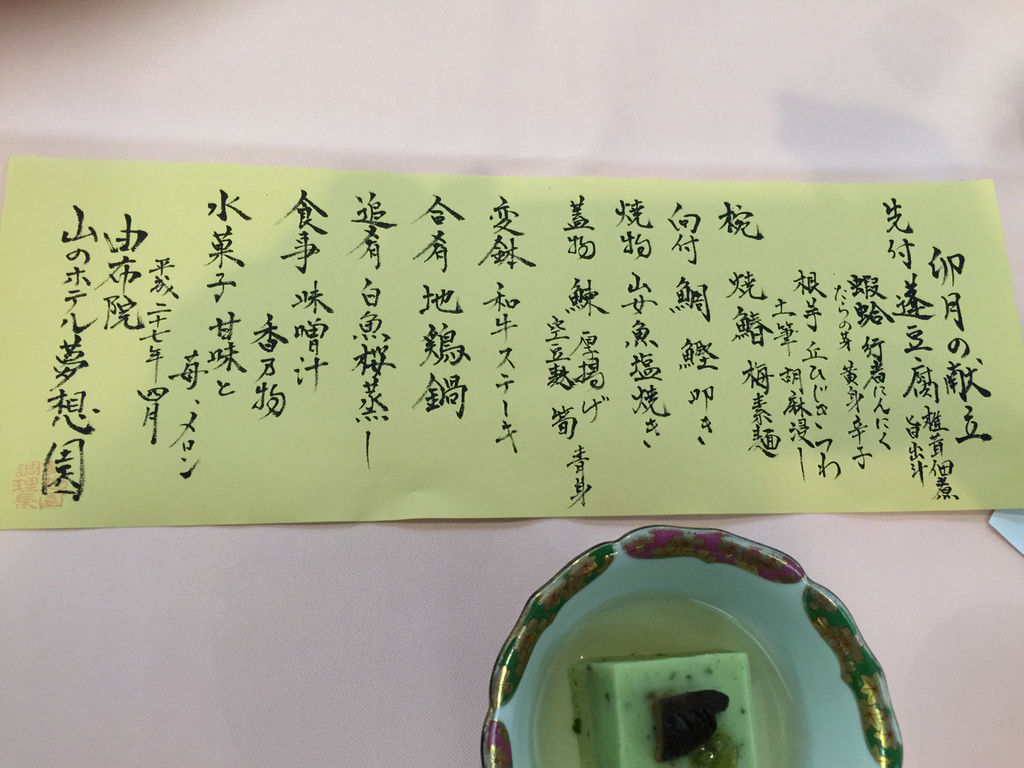 卯月の献立
先付 蓬豆腐 椎茸佃煮 旨出汁
蝦蛤 行者にんにく
たらの芽 黄身辛子
根芋 丘ひじき つわ
土筆 胡麻浸し
椀 焼鰆 梅素麺
向付 鯛 鰹叩き
焼物 山女魚塩焼き
蓋物 鰊 厚揚げ 筍
空豆麩 青身
変鉢 和牛ステーキ
合肴 地鶏鍋
追肴 白魚桜蒸し
食事 味噌汁
香乃物
水菓子 甘味と
苺、メロン
平成二十七年 四月
由布院
山のホテル夢想園